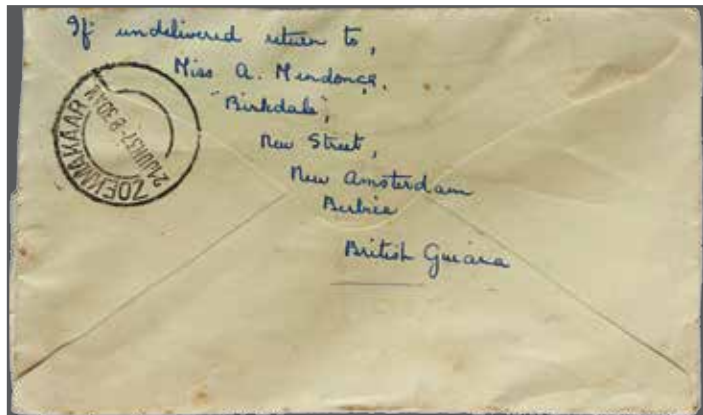 If undelivered return to,
Miss A. Mendonça.
"Birkdale",
New Street,
New Amsterdam
Berbice
British Guiana
ZOEKMAKAAR
21 JUN 37 - 8 30 AM